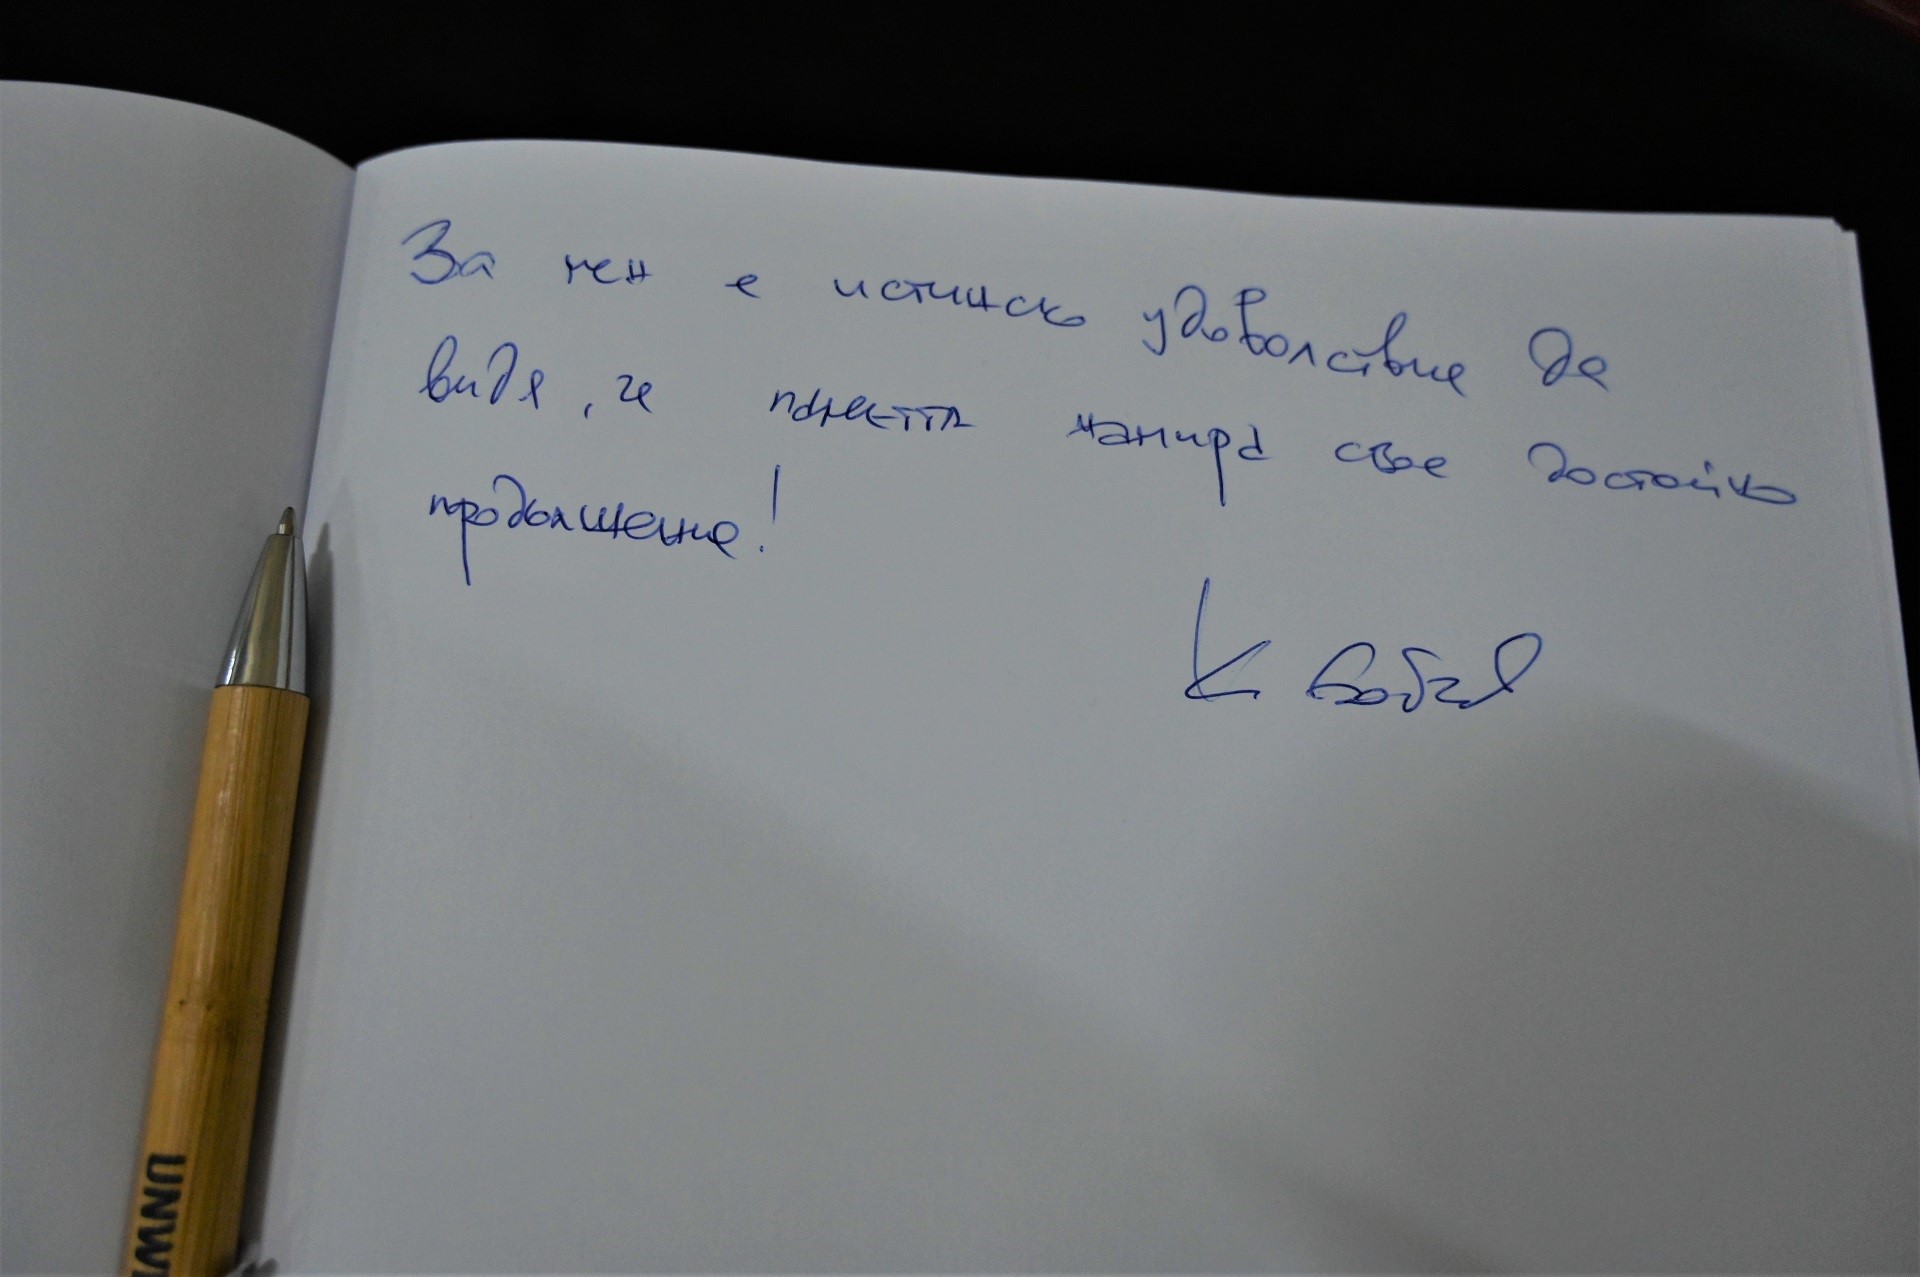 За мен е истинско удоволствие да
видя, че паметта намира свое достойно
продължение!
К
UNW